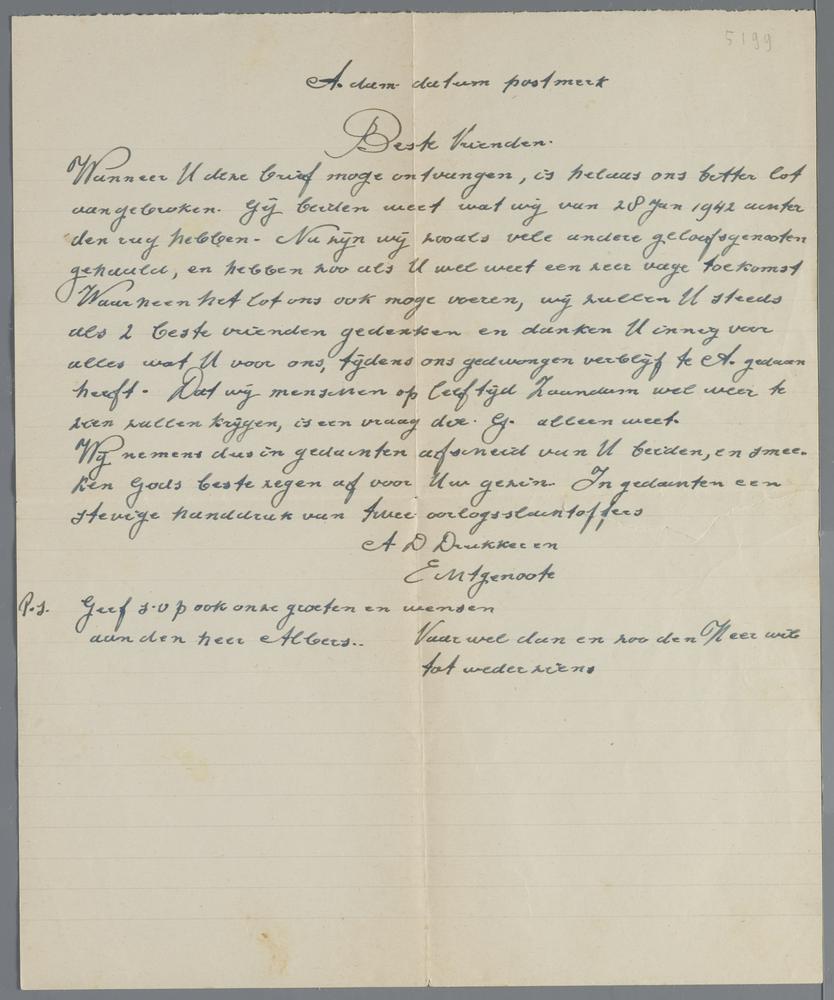 5199
A.dam datum postmerk
Beste Vrienden.
Wanneer U deze brief moge ontvangen, is helaas ons bitter lot
aangebroken. Gij beiden weet wat wij van 28 Jan 1942 achter
den rug hebben - Nu zijn wij zooals vele andere geloofsgenooten
gehaald, en hebben zoo als U wel weet een zeer vage toekomst
Waarheen het lot ons ook moge voeren, wij zullen U steeds
als 2 beste vrienden gedenken en danken U innig voor
alles wat U voor ons, tijdens ons gedwongen verblijf te A. gedaan
heeft - Dat wij menschen op leeftijd Zaandam wel weer te
zien zullen krijgen, is een vraag die. G. alleen weet.
Wij nemens dus in gedachten afscheid van U beiden, en smee-
ken Gods beste zegen af voor Uw gezin. In gedachten een
stevige handdruk van twee oorlogsslachtoffers
A D Drukker en
Echtgenoote
P.S. Geef s.v p ook onze groeten en wensen
aan den heer Albers.. Vaar wel dan en zoo den Heer wil
tot weder ziens